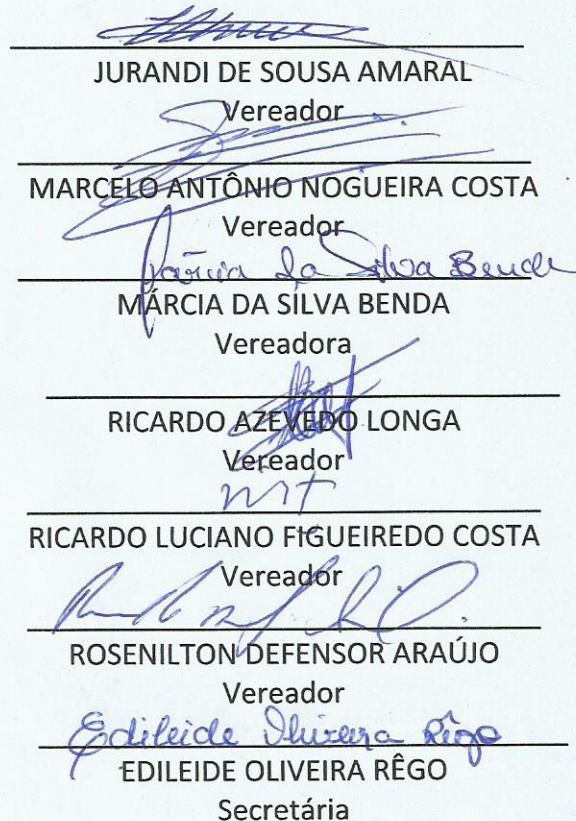 JURANDI DE SOUSA AMARAL
Vereador
MARCELO ANTÔNIO NOGUEIRA COSTA
Vereador
Márcia da Silva Benda
MÁRCIA DA SILVA BENDA
Vereadora
RICARDO AZEVEDO LONGA
Vereador
RICARDO LUCIANO FIGUEIREDO COSTA
Vereador
ROSENILTON DEFENSOR ARAÚJO
Vereador
Edileide Oliveira Rêgo
EDILEIDE OLIVEIRA RÊGO
Secretária